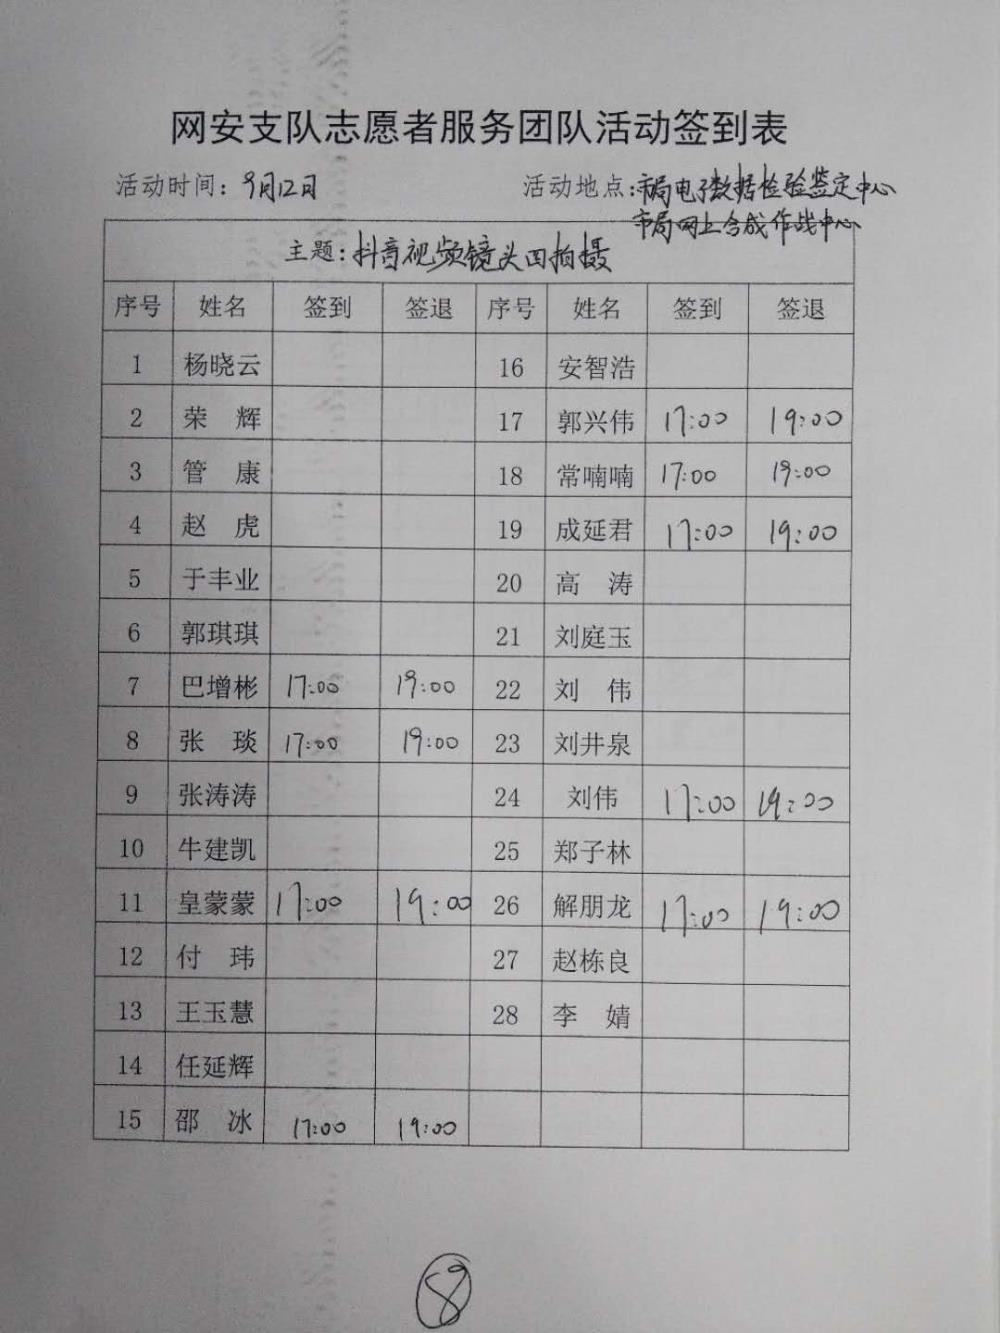 网安支队志愿者服务团队活动签到表
活动时间：9月12日 活动地点：市局电子数据检验鉴定中心
市局网上合成作战中心
主题：抖音视频镜头回拍摄
序号 姓名 签到 签退 序号 姓名 签到 签退
1 杨晓云 16 安智浩
2 荣 辉 17 郭兴伟 17:00 19:00
3 管 康 18 常喃喃 17:00 19:00
4 赵 虎 19 成延君 17:00 19:00
5 于丰业 20 高 涛
6 郭琪琪 21 刘庭玉
7 巴增彬 17:00 19:00 22 刘 伟
8 张 琰 17:00 19:00 23 刘井泉
9 张涛涛 24 刘伟 17:00 19:00
10 牛建凯 25 郑子林
11 皇蒙蒙 17:00 19:00 26 解朋龙 17:00 19:00
12 付 玮 27 赵栋良
13 王玉慧 28 李 婧
14 任延辉
15 邵 冰 17:00 19:00
8